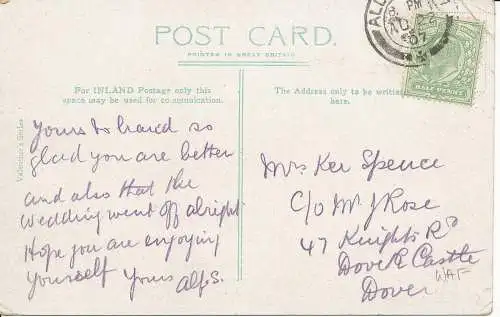 POST CARD.
PRINTED IN GREAT BRITAIN
For INLAND Postage only this
space may be used for communication.
The Address only to be written
here.
Valentine's Series
8 PM
07
HALF PENNY
Yours to hand so
glad you are better
and also that the
Wedding went off alright
Hope you are enjoying
yourself yours Alf.S.
Mrs Ker Spence
C/o Mr J Rose
47 Knights Rd
Dover Castle
Dover